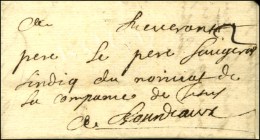 Au Reverant
pere Le pere faugeron
sindiq du noviciat de
la companie de Jesus
A Bourdeaux